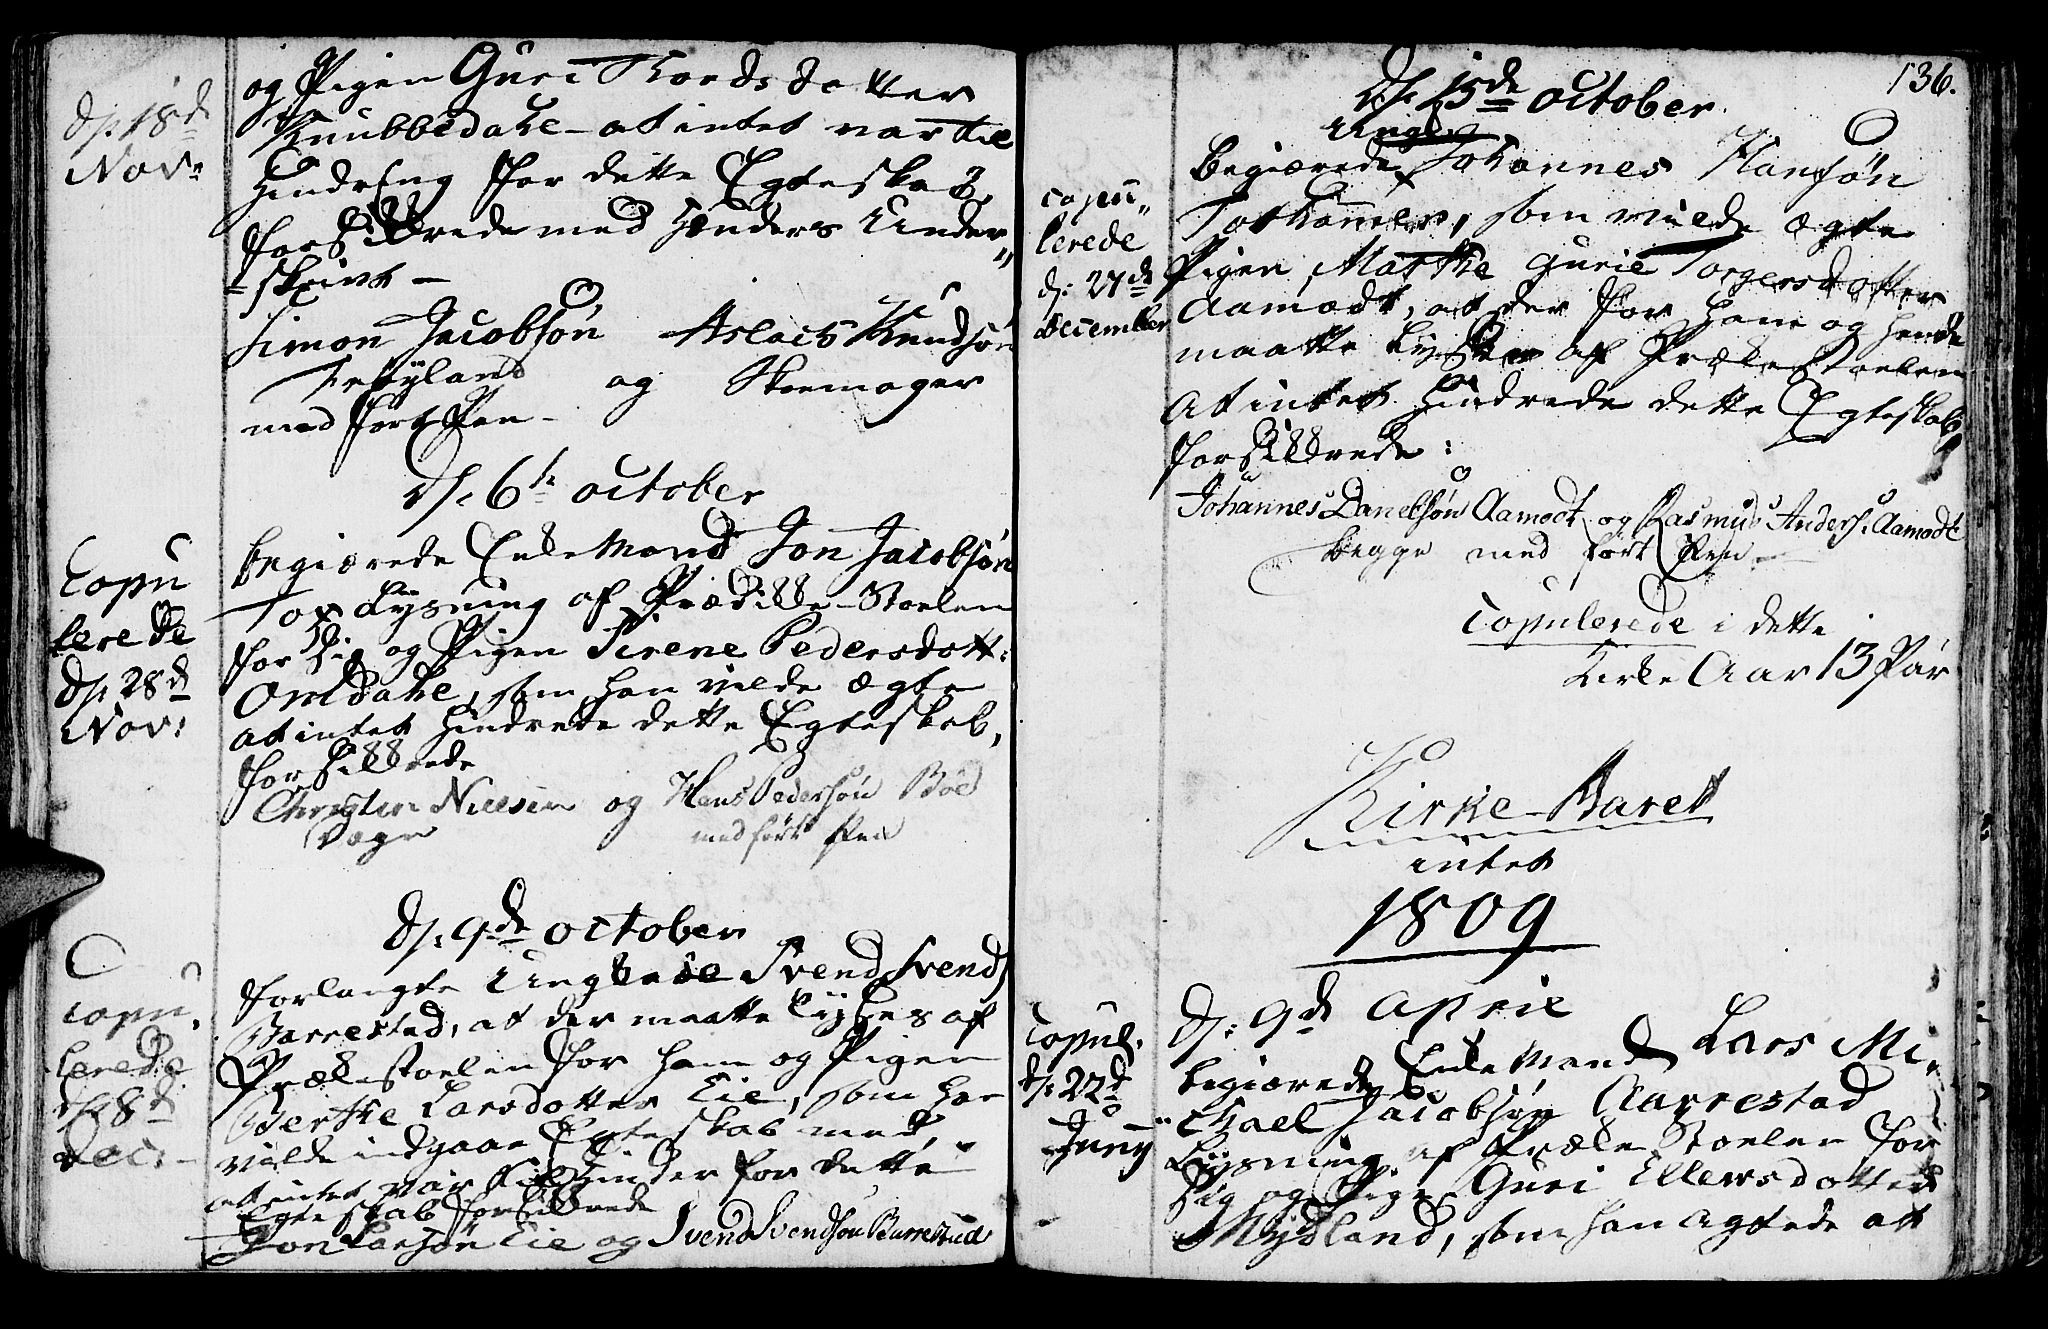 d: 18d
Nov:
og Pigen Guri Tordsdatter
Knubbedahl - at intet var til
Hindring for dette Egteskab,
forsikkrede med Hænders Under„
skrivt -
Simon Jacobsøn Aslach Knudsøn
Fröÿland og Skremager
med fört Pen -
d: 6te October
Copu
lerede
d: 28d
Nov:
begiærede Enke Mand Jon Jacobsøn
Lysning af Prædikke-Stoelen
for Sig og Pigen Sirene Pedersdatt:
Omdahl, som han vilde ægte
at intet hindrede dette Egteskab,
forsikkrede
Christen Nielsen og Hans Pedersøn Böe
med fört Pen
d: 9de October
Copu,
lerede
d: 8d
Dec: -
forlangte Ungkarl Svend Svends
Barrestad, at der maatte lyses af
Prækestoelen for ham og Pigen
Berthe Larsdatter Eie, som han
vilde indgaae Egteskab med,
at intet var til Hinder for dette
Egteskab forsikkrede
Jon Larsøn Eie og Svend Svendsøn Barrestad
136.
d: 15de October
Ungk
Copu„
lerede
d: 27de
December
begiærede Johannes Hansøn
Tothammer, som vilde ægte
Pigen Marthe Gurie Torgersdatter
Aamodt, at der for ham og hende
maatte lyses af Prækestoelen
At intet hindrede dette Egteskab
forsikkrede:
Johannes Danelsøn Aamodt og Rasmus Anders: Aamodt
begge med fört Pen -
Copulerede i dette
Kirke Aar 13 Par
Kirke-Aaret
intet
1809
d: 9d April
Copul.
d: 22d
Junÿ
begiærede Enke Mand Lars Mi„
chael Jacobsøn Aarrestad
Lysning af Præke Stoelen for
Sig og Pige Guri Ellewsdatter
Mydland, som han agtede at